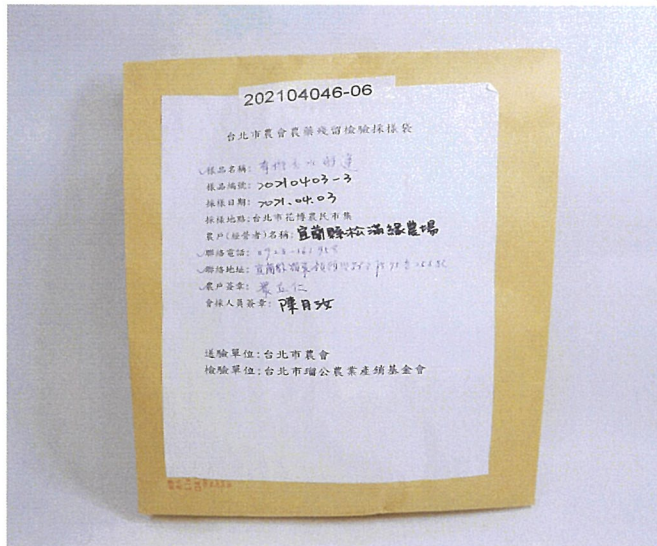 202104046-06
台北市農會農藥殘留檢驗採樣袋
樣品名稱:有機
樣品編號:20210403-3
採樣日期:2021.04.03
採樣地點:台北市花博農民市集
農戶(經營者)名稱:宜蘭縣松滿緣農場
聯絡電話:
聯絡地址:宜蘭縣
農戶簽章:
會採人員簽章:陳月玫
送驗單位:台北市農會
檢驗單位:台北市瑠公農業產銷基金會